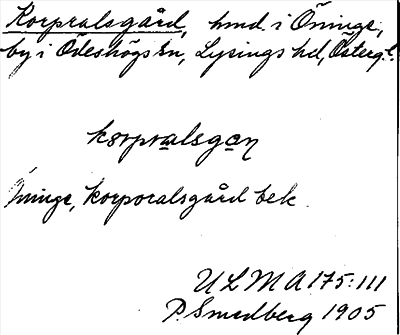 Korpralsgård, hmd. i Öninge,
by i Ödeshögs sn, Lysings hd, Österg.l.
korpralsgan
Öninge, korporalsgård bek.
ULMA 175:111
P. Smedberg 1905